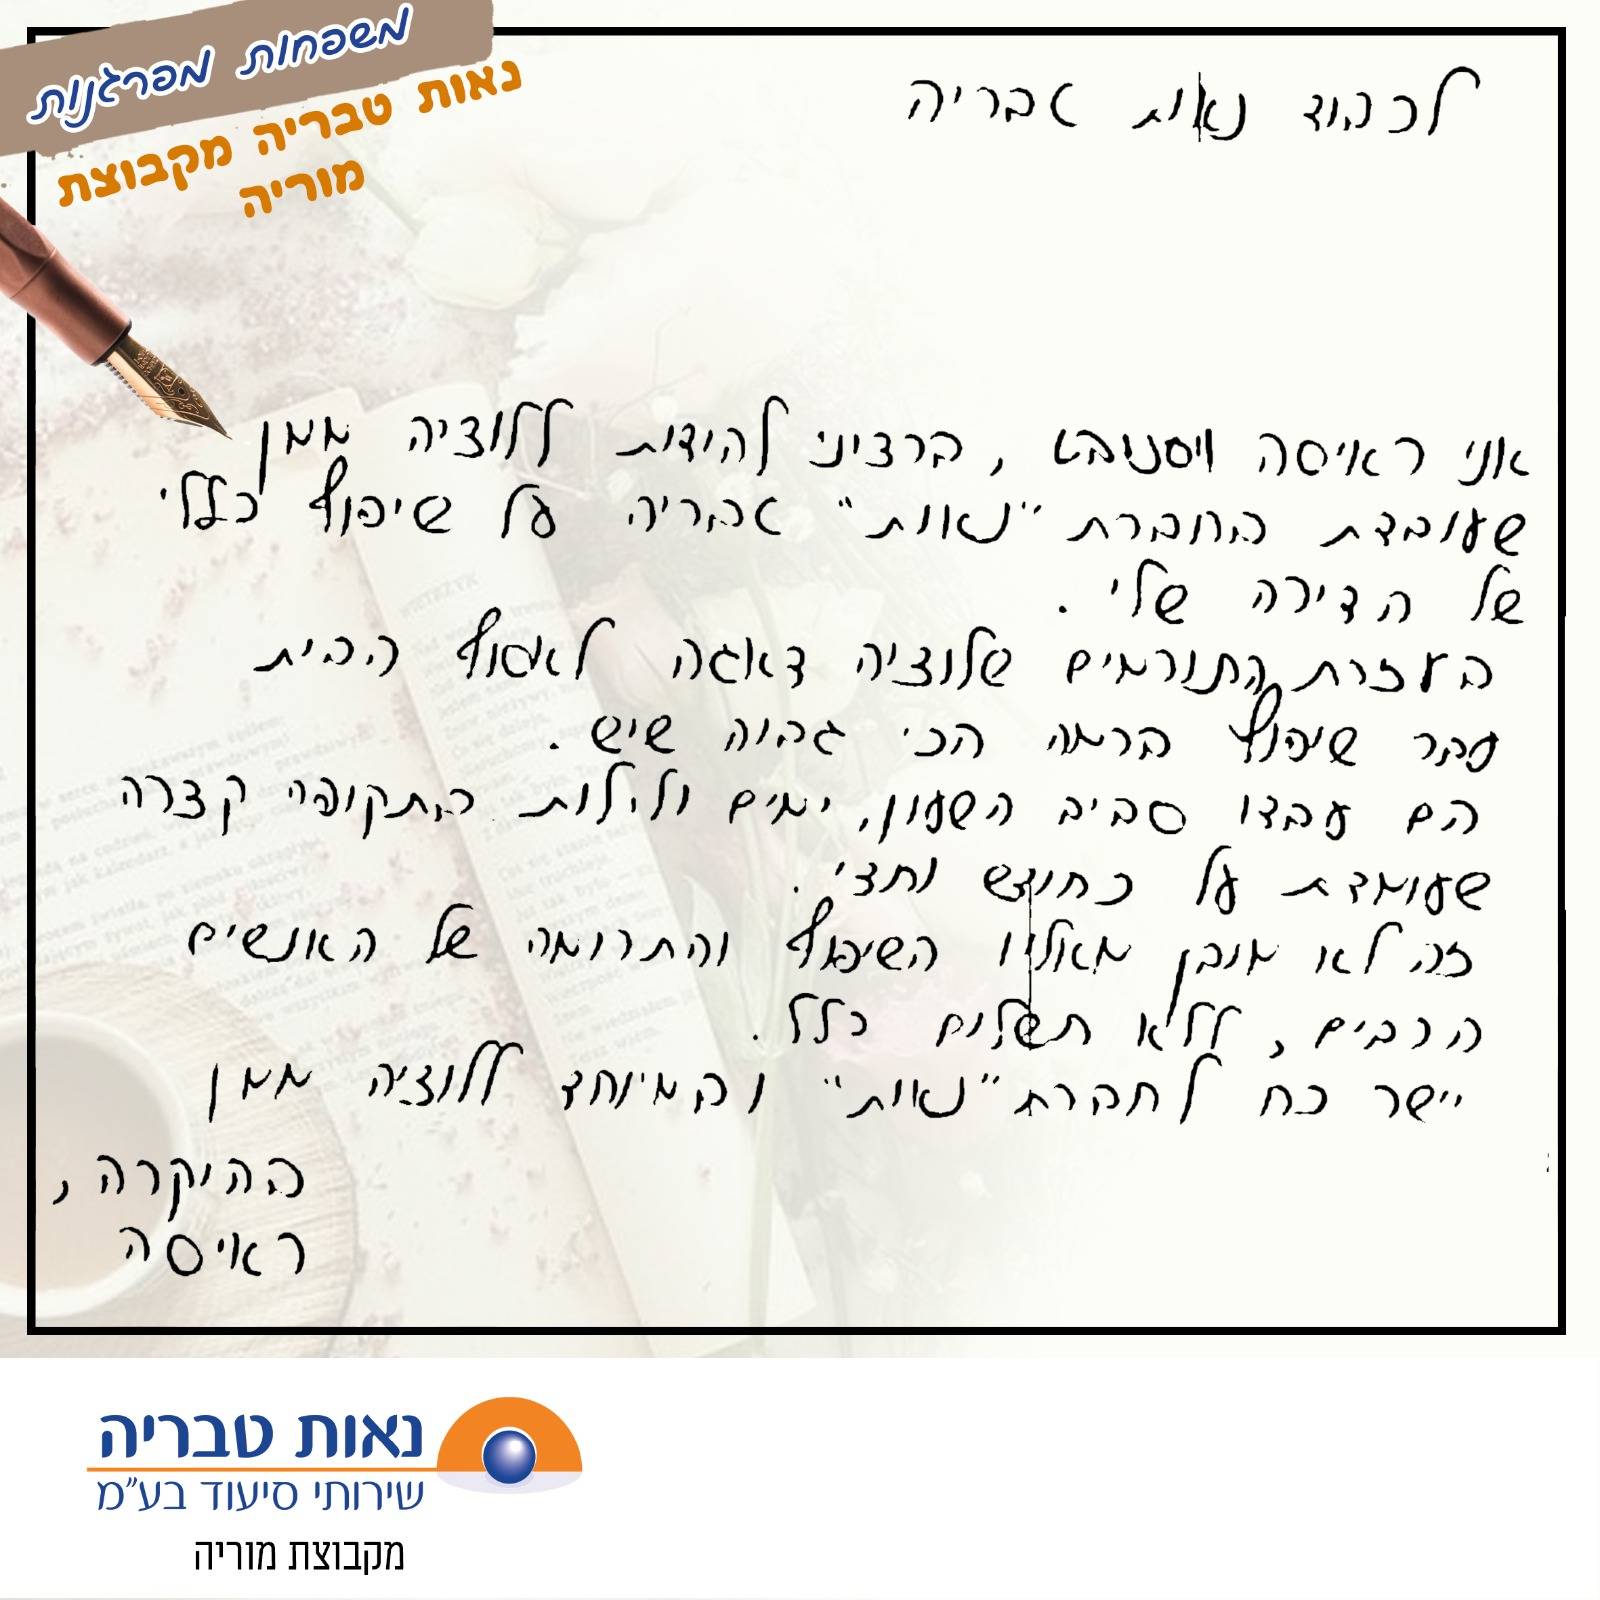 משפחות מפרגנות
נאות טבריה מקבוצת
מוריה
לכבוד נאות טבריה
אני ראיסה ויסנובט, ברצוני להודות ללוציה ממן
שעובדת בחברת "נאות" טבריה על שיפוץ כללי
של הדירה שלי.
בעזרת התורמים שלוציה דאגה לאסוף הבית
עבר שיפוץ ברמה הכי גבוה שיש.
הם עבדו סביב השעון, ימים ולילות בתקופה קצרה
שעומדת על כחודש וחצי.
זה לא מובן מאליו השיפוץ והתרומה של האנשים
הרבים, ללא תשלום כלל.
יישר כח לחברת "נאות" ובמיוחד ללוציה ממן
בהיקרה,
ראיסה
נאות טבריה
שירותי סיעוד בע"מ
מקבוצת מוריה